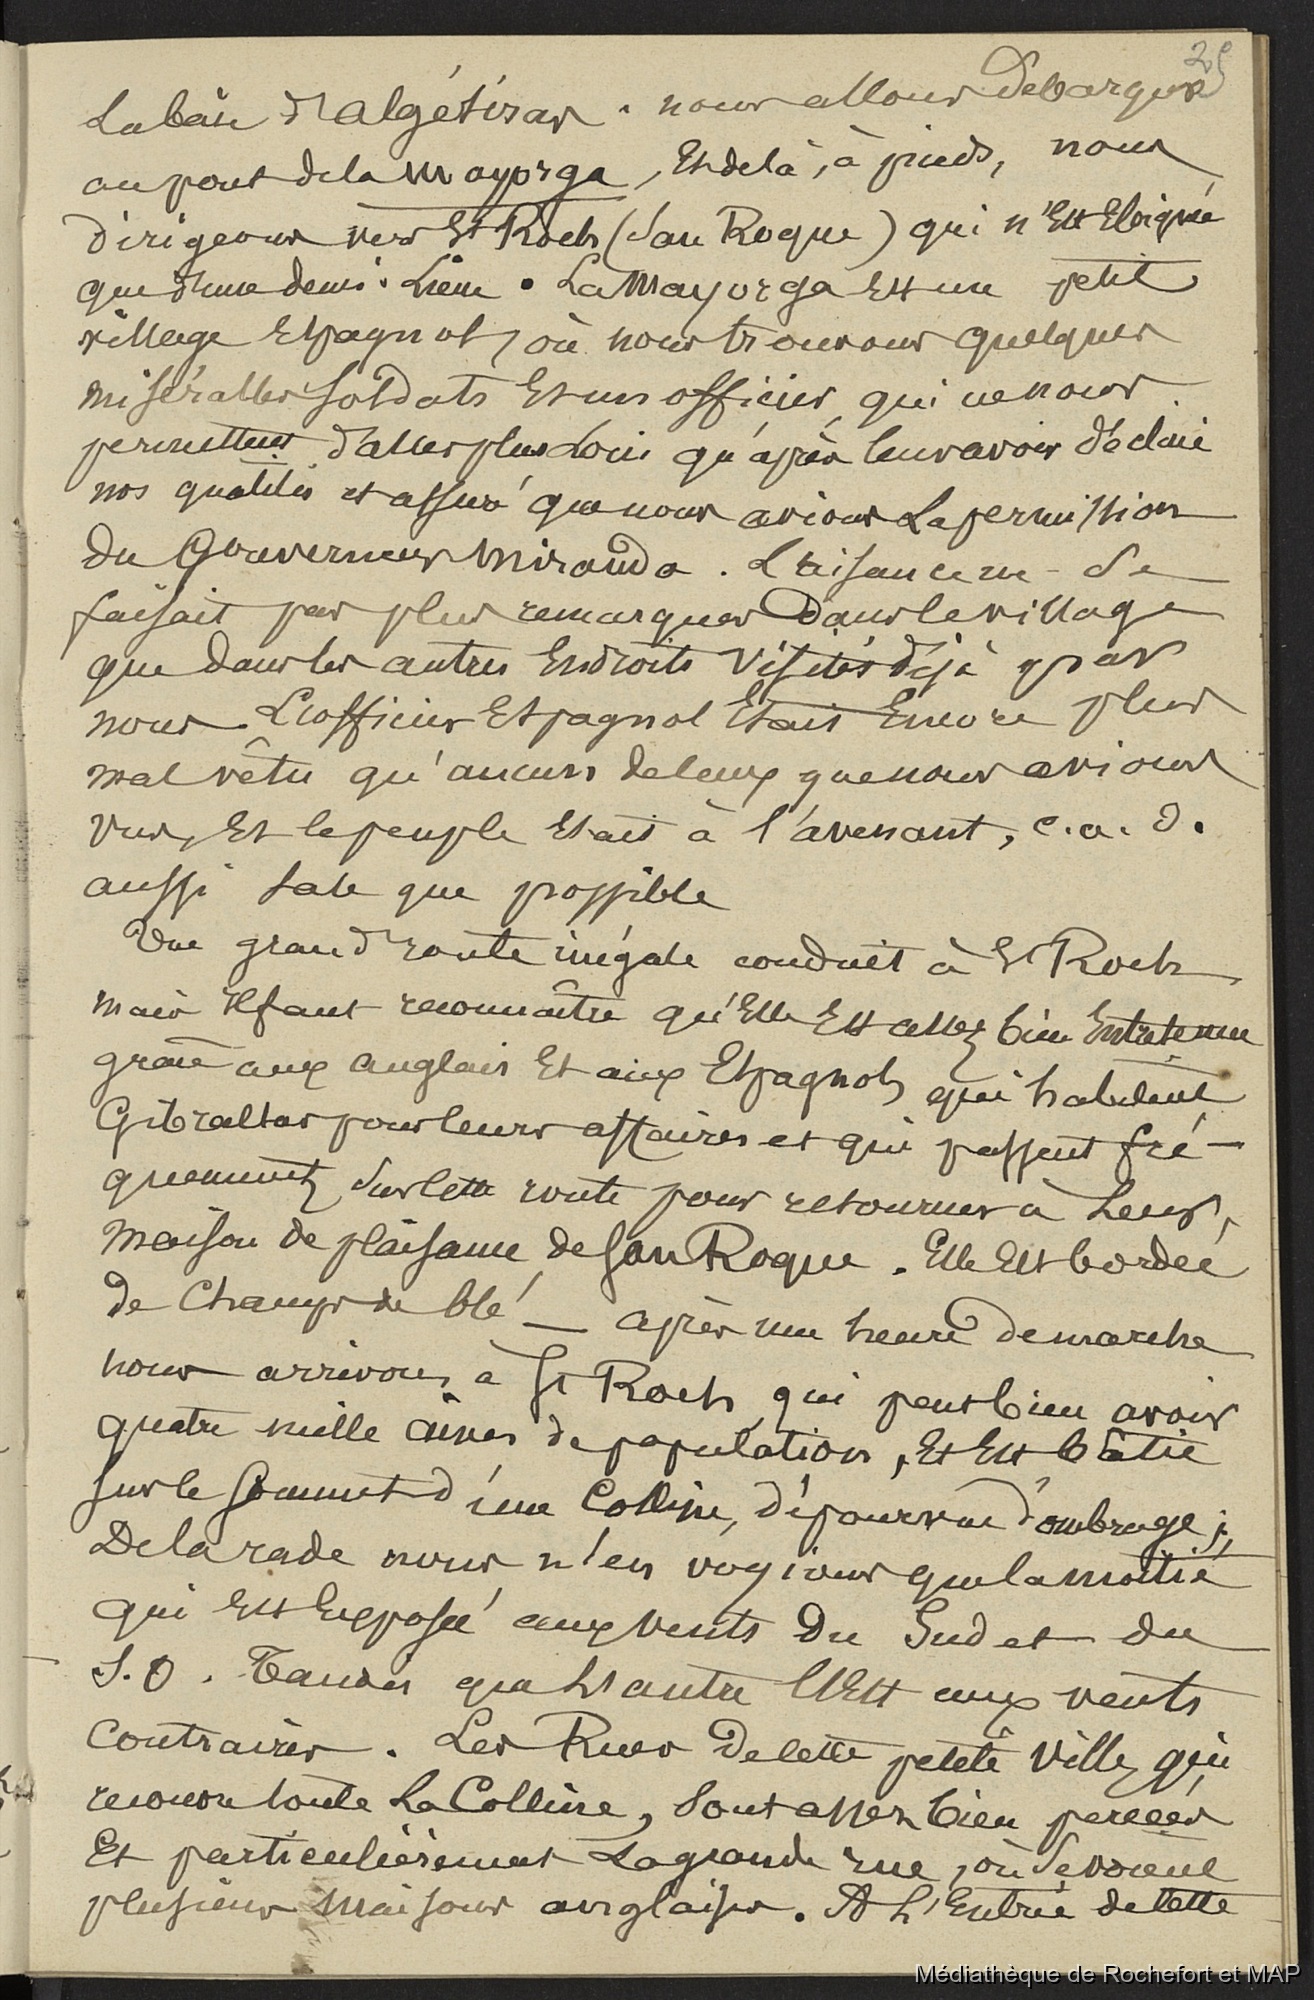 25
La baie d'algésiras. nous allons Debarquer
au pont de la Mayorga, Et delà, à pieds, nous
dirigeons vers St Roch (San Roque) qui n'Est Eloigné
que d'une demi. Lieue. La Mayorga Est un petit
village Espagnol, où nous trouvons quelques
misérables soldats Et un officier, qui ne nous
permettent d'aller plus Loin qu'après leur avoir déclaré
nos qualités et assuré que nous avions La permission
du Gouverneur Miranda. L'aisance ne se
faisait pas plus remarquer Dans le village
que dans les autres Endroits visités déjà par
nous. L'officier Espagnol Etait Encore plus
mal vêtu qu'aucun de ceux que nous avions
vus, Et le peuple Etait à l'avenant, c.a.d.
aussi sale que possible
Une grand route inégale conduit à St Roch
mais il faut reconnaître qu'Elle Est assez bien Entretenue
grâce aux anglais Et aux Espagnols qui habitent
Gibraltar pour leurs affaires et qui passent fré-
quemment sur cette route pour retourner à Leurs
maison de plaisance de San Roque. Elle Est bordée
de Champs de blé — après une heure de marche
nous arrivons à St Roch, qui peut bien avoir
quatre mille âmes de population, Et Est bâtie
sur le sommet d'une Colline, dépourvue d'ombrage;
De la rade nous n'en voyions que la moitié
qui Est Exposée aux vents Du Sud et du
S.O. Tandis que l'autre l'Est aux vents
contraires. Les Rues De cette petite Ville, qui
recouvre toute La Colline, sont assez bien percées
Et particulièrement La grande rue, où se voient
plusieurs maisons anglaises. A L'Entrée de cette
Médiathèque de Rochefort et MAP